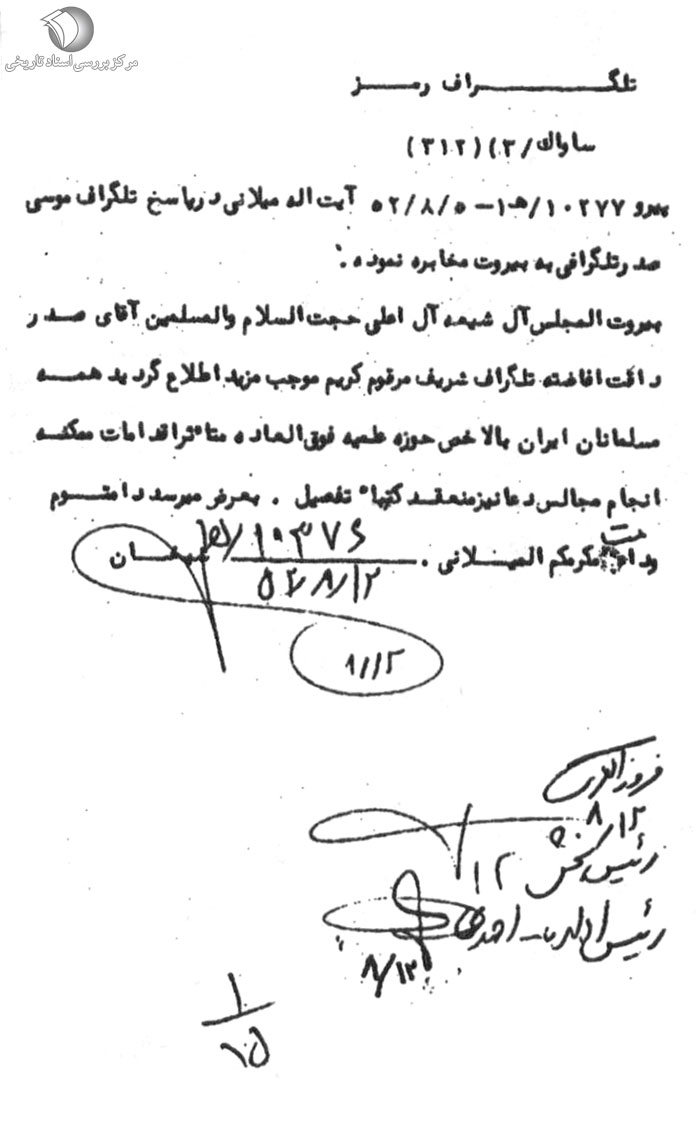 مرکز بررسی اسناد تاریخی
تلگراف رمز
ساواك/۳) (۳۱۲)
پیرو ۱۰۲۷۷/هـ۱ -۵۲/۸/۵ آیت اله میلانی در پاسخ تلگراف موسی
صدر تلگرافی به بیروت مخابره نموده.
بیروت المجلس آل شیعه آل اعلی حجت السلام والمسلمین آقای صدر
دافت افاضته تلگراف شریف مرقوم کریم موجب مزید اطلاع گردید همه
مسلمانان ایران بالاخص حوزه علمیه فوق العاده متاثر اقدامات ممکنه
انجام مجالس دعا نیز منعقد کتبا تفصیل . بعرض میرسد دامتوم
مکرمکم المیلانی .
۱۰۳۷۶
۵۲/۸/۱۲
۸/۱۲
۸/۱۲
رئیس بخش ۱۲
رئیس اداره
۸/۱۲
۱
۱۵